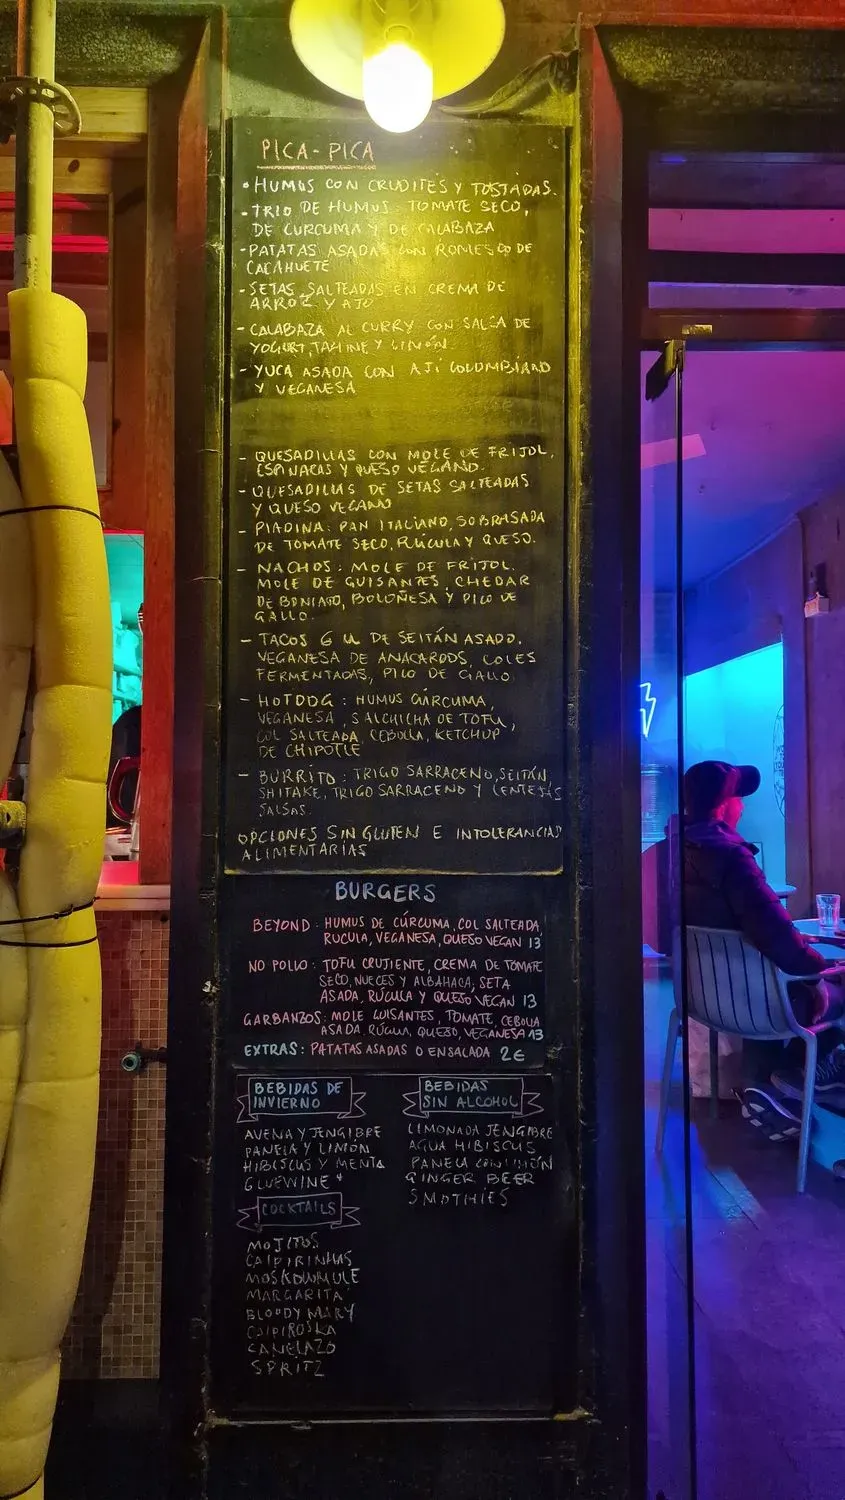 PICA-PICA
• HUMUS CON CRUDITES Y TOSTADAS.
- TRIO DE HUMUS: TOMATE SECO,
DE CURCUMA Y DE CALABAZA
- PATATAS ASADAS CON ROMESCO DE
CACAHUETE
- SETAS SALTEADAS EN CREMA DE
ARROZ Y AJO
- CALABAZA AL CURRY CON SALSA DE
YOGURT, TAHINE Y LIMÓN
- YUCA ASADA CON AJÍ COLOMBIANO
Y VEGANESA
- QUESADILLAS CON MOLE DE FRIJOL,
ESPINACAS Y QUESO VEGANO.
- QUESADILLAS DE SETAS SALTEADAS
Y QUESO VEGANO
- PIADINA: PAN ITALIANO, SOBRASADA
DE TOMATE SECO, RUCULA Y QUESO.
- NACHOS: MOLE DE FRIJOL.
MOLE DE GUISANTES, CHEDAR
DE BONIATO, BOLOÑESA Y PICO DE
GALLO.
- TACOS 6 U DE SEITÁN ASADO,
VEGANESA DE ANACARDOS, COLES
FERMENTADAS, PICO DE GALLO
- HOTDOG: HUMUS CÚRCUMA,
VEGANESA, SALCHICHA DE TOFU,
COL SALTEADA, CEBOLLA, KETCHUP
DE CHIPOTLE
- BURRITO: TRIGO SARRACENO, SEITÁN,
SHITAKE, TRIGO SARRACENO Y LENTEJAS
SALSAS.
OPCIONES SIN GLUTEN E INTOLERANCIAS
ALIMENTARIAS
BURGERS
BEYOND: HUMUS DE CÚRCUMA, COL SALTEADA,
RUCULA, VEGANESA, QUESO VEGAN 13
NO POLLO: TOFU CRUJIENTE, CREMA DE TOMATE
SECO, NUECES Y ALBAHACA, SETA
ASADA, RÚCULA Y QUESO VEGAN 13
GARBANZOS: MOLE GUISANTES, TOMATE, CEBOLLA
ASADA, RÚCULA, QUESO, VEGANESA 13
EXTRAS: PATATAS ASADAS O ENSALADA 2€
BEBIDAS DE
INVIERNO
AVENA Y JENGIBRE
PANELA Y LIMÓN
HIBISCUS Y MENTA
GLUEWINE *
BEBIDAS
SIN ALCOHOL
LIMONADA JENGIBRE
AGUA HIBISCUS
PANELA CON LIMÓN
GINGER BEER
SMOTHIES
COCKTAILS
MOJITOS
CAIPIRINHAS
MOSKOWMULE
MARGARITA
BLOODY MARY
CAIPIROSKA
CANELAZO
SPRITZ